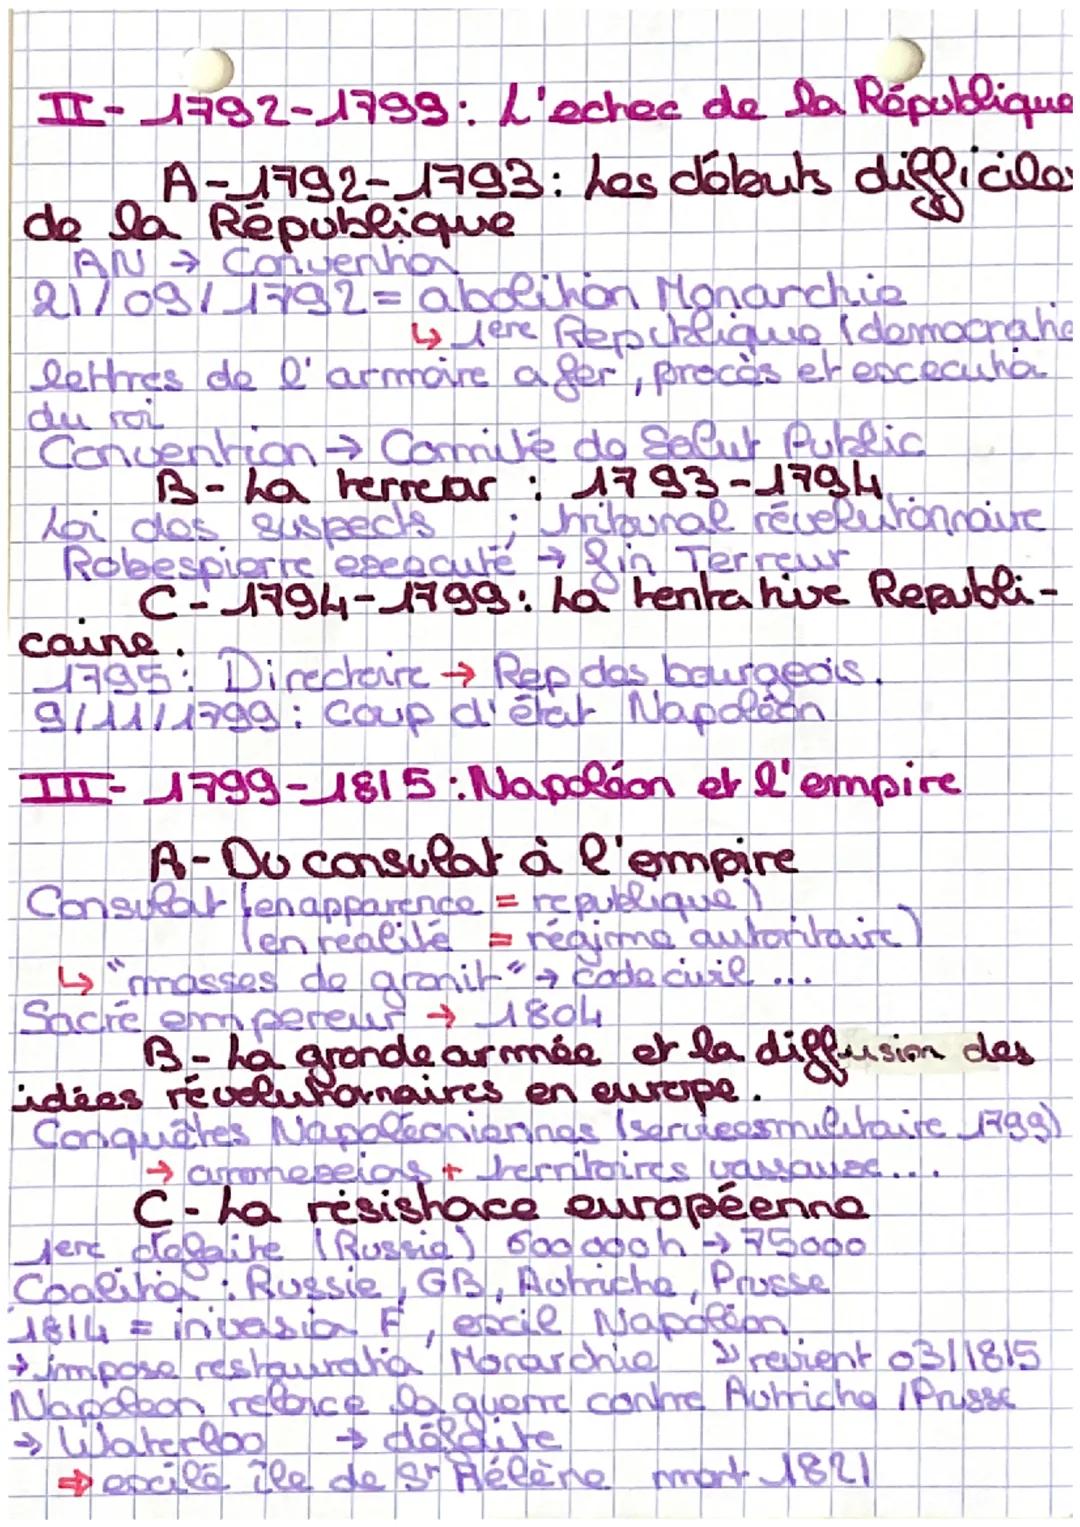 II- 1792-1799: L'echec de la République
A-1792-1793: Les débuts difficiles
de la République
AN → Convention
21/09/1792 = abolition Monarchie
↳ 1ere Republique (democratie
lettres de l'armoire a fer, procès et excecution
du roi
Convention → Comité de Salut Public
B- La terreur : 1793-1794
Loi des suspects ; tribunal révolutionnaire
Robespierre execcuté → fin Terreur
C- 1794-1799: La tentative Republi-
caine.
1795: Directoire → Rep des bourgeois.
9/11/1799: coup d'état Napoléon
III- 1799-1815: Napoléon et l'empire
A- Du consulat à l'empire
Consulat (en apparence = republique)
(en realité = régime autoritaire)
↳ "masses de granit" → code civil ...
Sacré empereur → 1804
B- La grande armée et la diffusion des
idées révolutionnaires en europe.
Conquêtes Napoléoniennes (services militaire 1799)
→ annnexions + territoires vassaux...
C- La résistance européenne
1ere défaite (Russie) 600 000h → 75000
Coalition : Russie, GB, Autriche, Prusse
1814 = invasion F, exil Napoléon
→ impose restauration Monarchie ⤷ revient 03/1815
Napoleon relance la guerre contre Autriche /Prusse
→ Waterloo → défaite
⇒ exilé île de St Hélène mort 1821